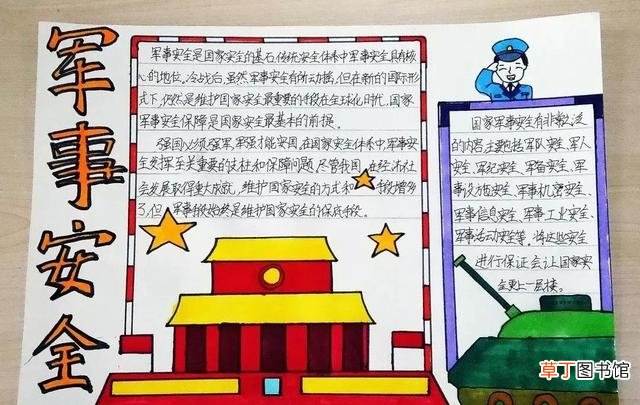 军事安全
军事安全是国家安全的基石,传统安全体系中军事安全具有核
心的地位。冷战后,虽然军事安全有所动摇,但在新的国际形
式下,仍然是维护国家安全最重要的手段在全球化时代,国家
军事安全保障是国家安全最基本的前提。
强国必须强军,军强才能安国,在国家安全体系中军事安
全发挥至关重要的支柱和保障问题,尽管我国,在经济社
会发展取得重大成就,维护国家安全的方式和手段增多
了,但,军事手段始终是维护国家安全的保底手段。
国家军事安全有非常广泛
的内容主要包括军队安全、军人
安全、军纪安全、军备安全、军
事设施安全、军事机密安全、
军事信息安全、军事工业安全、
军事活动安全等。将这些安全
进行保证会让国家安
全更上一层楼。
草丁图书馆